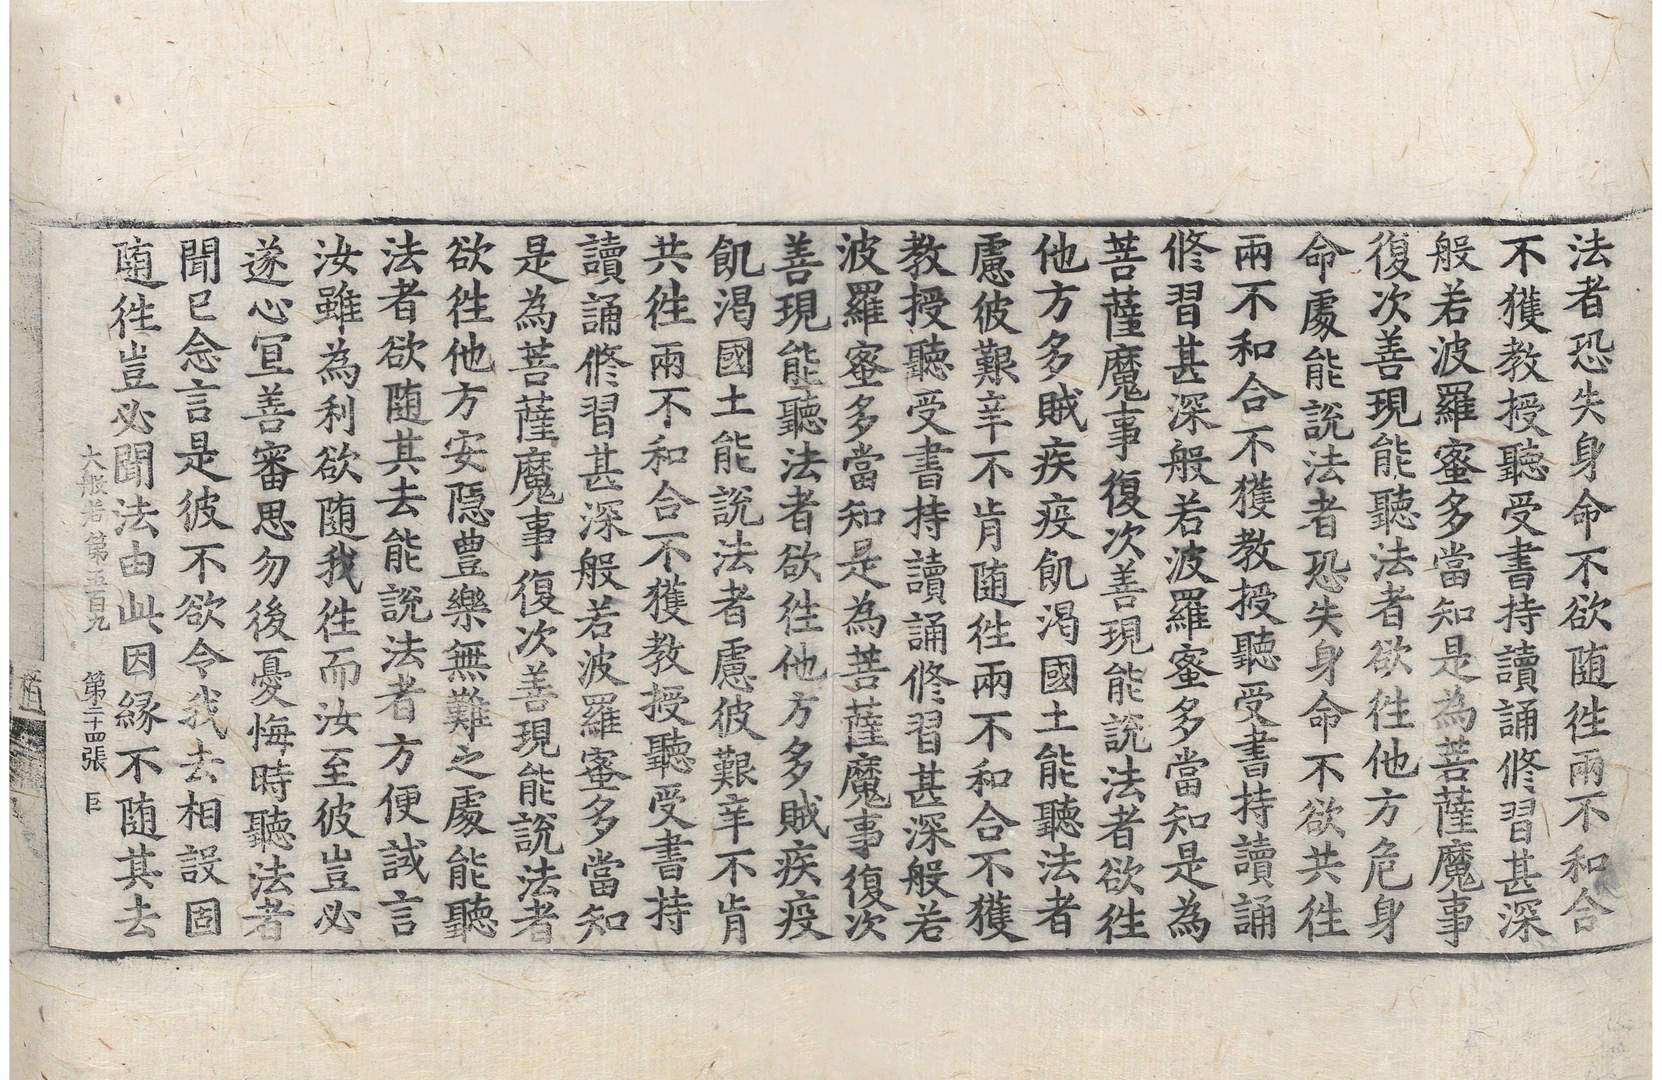 法者恐失身命不欲随徃兩不和合
不獲教授聽受書持讀誦修習甚深
般若波羅蜜多當知是為菩薩魔事
復次善現能聽法者欲徃他方危身
命處能說法者恐失身命不欲共徃
兩不和合不獲教授聽受書持讀誦
修習甚深般若波羅蜜多當知是為
菩薩魔事復次善現能說法者欲徃
他方多賊疾疫飢渴國土能聽法者
慮彼艱辛不肯随徃兩不和合不獲
教授聽受書持讀誦修習甚深般若
波羅蜜多當知是為菩薩魔事復次
善現能聽法者欲徃他方多賊疾疫
飢渴國土能說法者慮彼艱辛不肯
共徃兩不和合不獲教授聽受書持
讀誦修習甚深般若波羅蜜多當知
是為菩薩魔事復次善現能說法者
欲徃他方安隱豊樂無難之處能聽
法者欲随其去能說法者方便誡言
汝雖為利欲随我徃而汝至彼豈必
遂心宜善審思勿後憂悔時聽法者
聞已念言是彼不欲令我去相設固
随徃豈必聞法由此因緣不随其去
大般若第五百九 第二十四張 巨